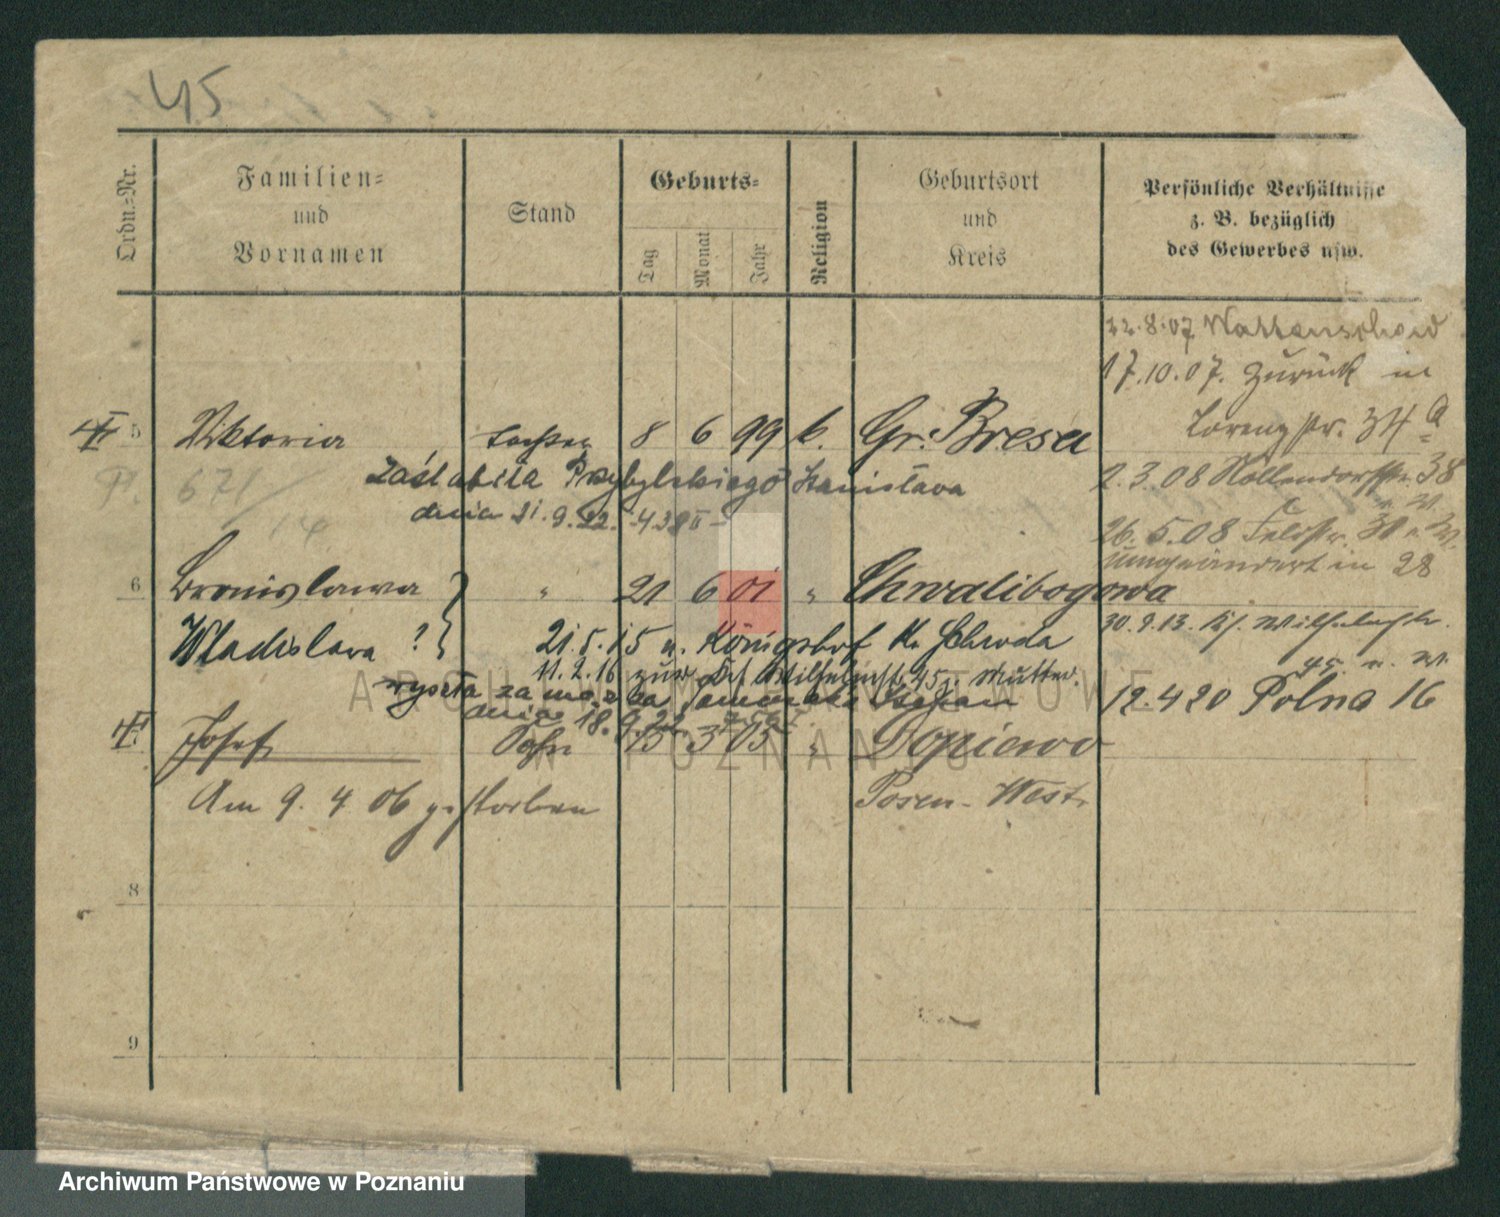 45
Ordn.-Nr.
Familien-
und
Vornamen
Stand
Geburts-
Tag
Monat
Jahr
Religion
Geburtsort
und
Kreis
Persönliche Verhältnisse
z. B. bezüglich
des Gewerbes usw.
22.8.07 Wattenscheid
17.10.07. zurück in
Lorenzstr. 34 a
5 Viktoria Tochter 8 6 99 k. Gr. Bresa
zaślubiła Przybylskiego Stanisława
dnia 21.9.22.
Pl. 671/14
2.3.08 Kollendorfstr. 38
26.5.08 Feldstr. 31
umgeändert in 28
6 Bronislawa " 21 6 01 " Chwalibogowo
Wladislava ? 21.5.15 n. Königshof Kr. Schroda
30.9.13. Wilhelmstr.
45
11.2.16 zur Wilhelmstr. 45 z. Mutter.
wyszła za mąż za Stefan
dnia 18.9.22.
12.4 20 Polna 16
Josef Sohn 15 3 05 " Dopiewo
Am 9. 4 06 gestorben
Posen-West
8
9
ARCHIWUM PAŃSTWOWE
W POZNANIU
Archiwum Państwowe w Poznaniu